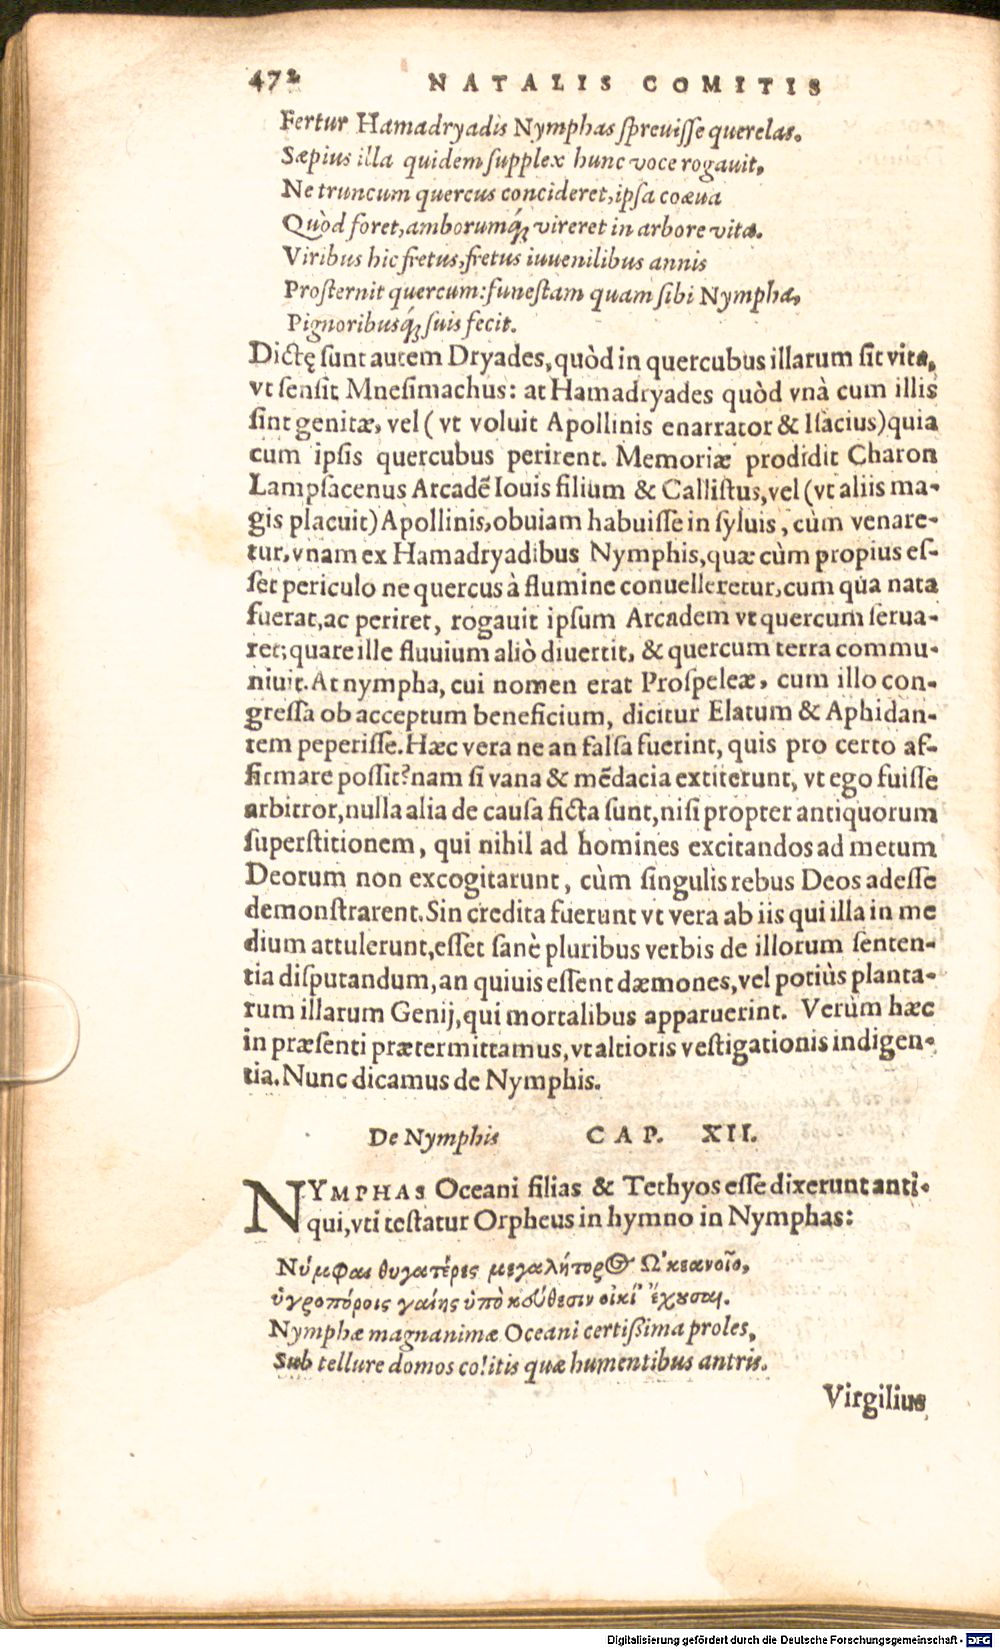 472 NATALIS COMITIS
Fertur Hamadryadis Nymphas ſpreuiſſe querelas.
Sæpius illa quidem ſupplex hunc voce rogauit,
Ne truncum quercus concideret, ipſa coæua
Quòd foret, amborumq́; vireret in arbore vita.
Viribus hic fretus, fretus iuuenilibus annis
Proſternit quercum: funeſtam quam ſibi Nympha,
Pignoribusq́; ſuis fecit.
Dictę ſunt autem Dryades, quòd in quercubus illarum ſit vita,
vt ſenſit Mneſimachus: at Hamadryades quòd vnà cum illis
ſint genitæ, vel (vt voluit Apollinis enarrator & Iſacius) quia
cum ipſis quercubus perirent. Memoriæ prodidit Charon
Lampſacenus Arcadẽ Iouis filium & Calliſtus, vel (vt aliis ma-
gis placuit) Apollinis, obuiam habuiſſe in ſyluis, cùm venare-
tur, vnam ex Hamadryadibus Nymphis, quæ cùm propius eſ-
ſet periculo ne quercus à flumine conuelleretur, cum qua nata
fuerat, ac periret, rogauit ipſum Arcadem vt quercum ſerua-
ret; quare ille fluuium aliò diuertit, & quercum terra commu-
niuit. At nympha, cui nomen erat Proſpeleæ, cum illo con-
greſſa ob acceptum beneficium, dicitur Elatum & Aphidan-
tem peperiſſe. Hæc vera ne an falſa fuerint, quis pro certo af-
firmare poſſit? nam ſi vana & mẽdacia extiterunt, vt ego fuiſſe
arbitror, nulla alia de cauſa ficta ſunt, niſi propter antiquorum
ſuperſtitionem, qui nihil ad homines excitandos ad metum
Deorum non excogitarunt, cùm ſingulis rebus Deos adeſſe
demonſtrarent. Sin credita fuerunt vt vera ab iis qui illa in me
dium attulerunt, eſſet ſanè pluribus verbis de illorum ſenten-
tia diſputandum, an quiuis eſſent dæmones, vel potiùs planta-
rum illarum Genij, qui mortalibus apparuerint. Verùm hæc
in præſenti prætermittamus, vt altioris veſtigationis indigen-
tia. Nunc dicamus de Nymphis.
De Nymphis CAP. XII.
NYMPHAS Oceani filias & Tethyos eſſe dixerunt anti-
qui, vti teſtatur Orpheus in hymno in Nymphas:
Νύμφαι θυγατέρες μεγαλήτορος Ὠκεανοῖο,
ὑγροπόροις γαίης ὑπὸ κεύθεσιν οἰκί' ἔχουσαι.
Nymphæ magnanimæ Oceani certiſſima proles,
Sub tellure domos colitis quæ humentibus antris.
Virgilius
Digitalisierung gefördert durch die Deutsche Forschungsgemeinschaft - DFG